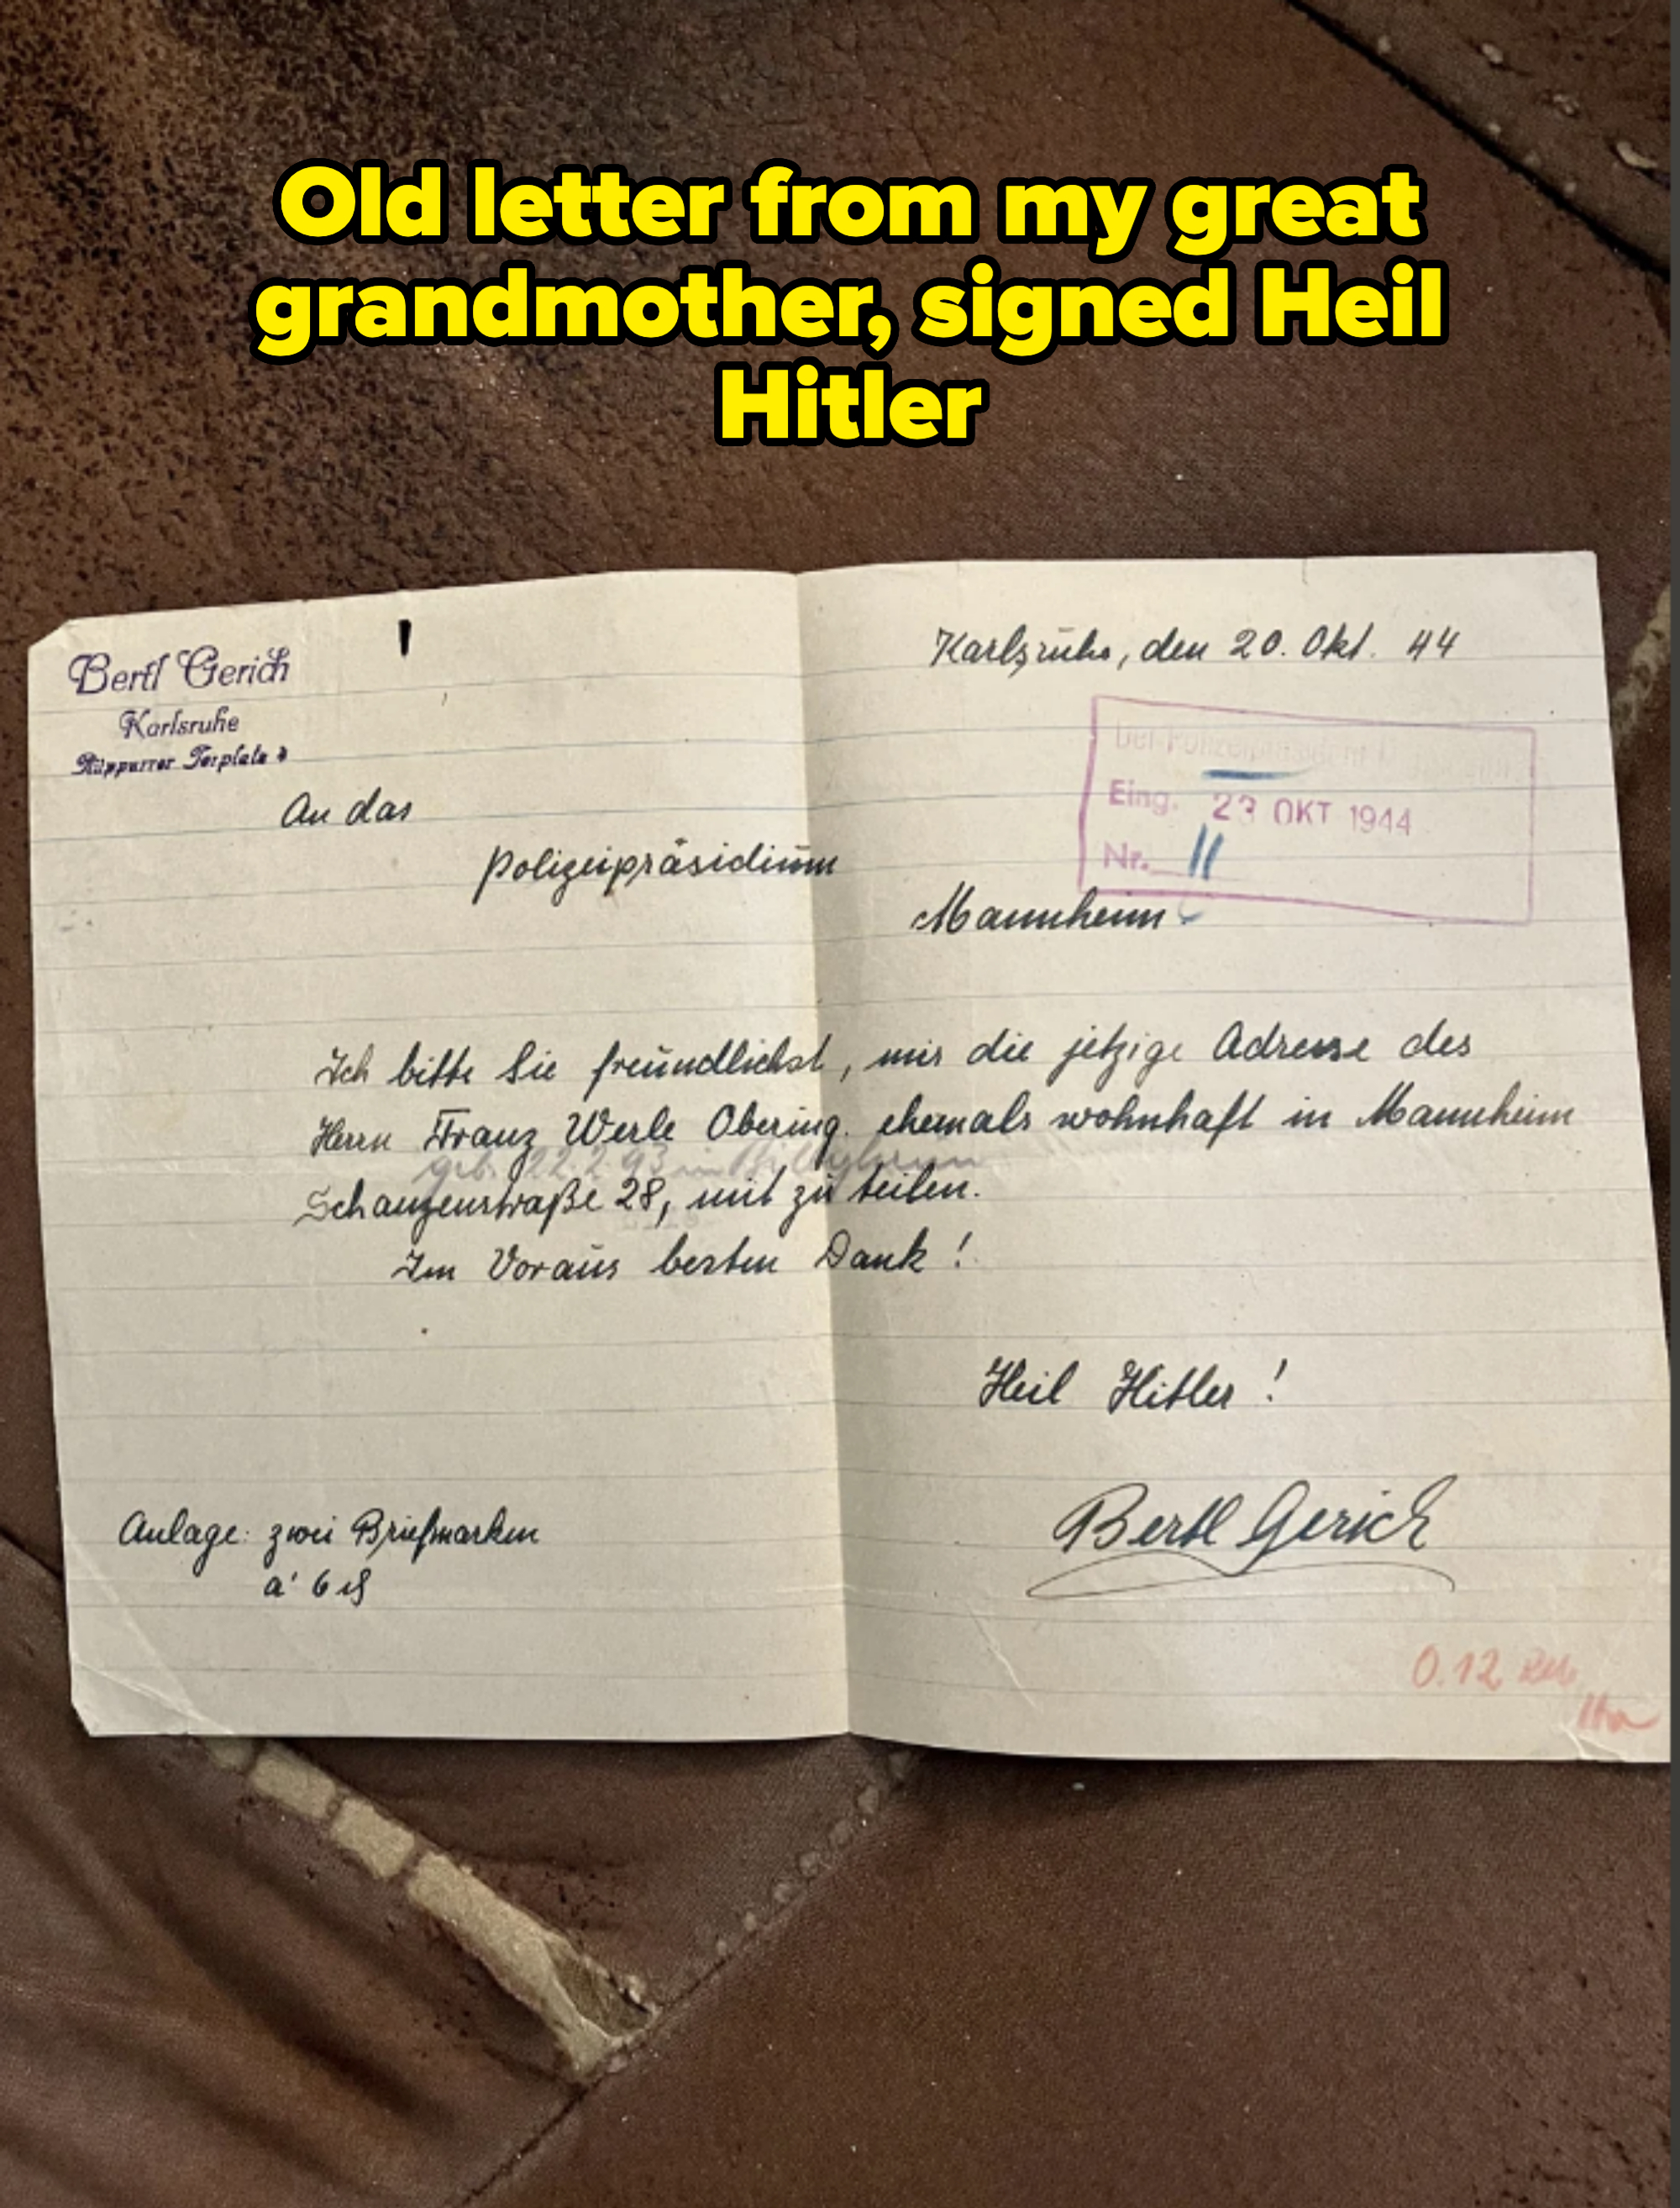 Old letter from my great
grandmother, signed Heil
Hitler
Bertl Gerich
Karlsruhe
Rüppurrer Torplatz
Karlsruhe, den 20. Okt. 44
Der Polizeipräsident
Eing. OKT 1944
Nr. 11
An das
Polizeipräsidium
Mannheim
Ich bitte Sie freundlichst, mir die jetzige Adresse des
Herrn Franz Werle Obering. ehemals wohnhaft in Mannheim
geb. 22.2.93 in
Schanzenstraße 28, mit zu teilen.
Im Voraus besten Dank!
Heil Hitler!
Bertl Gerich
Anlage: zwei Briefmarken
a' 6
0.12